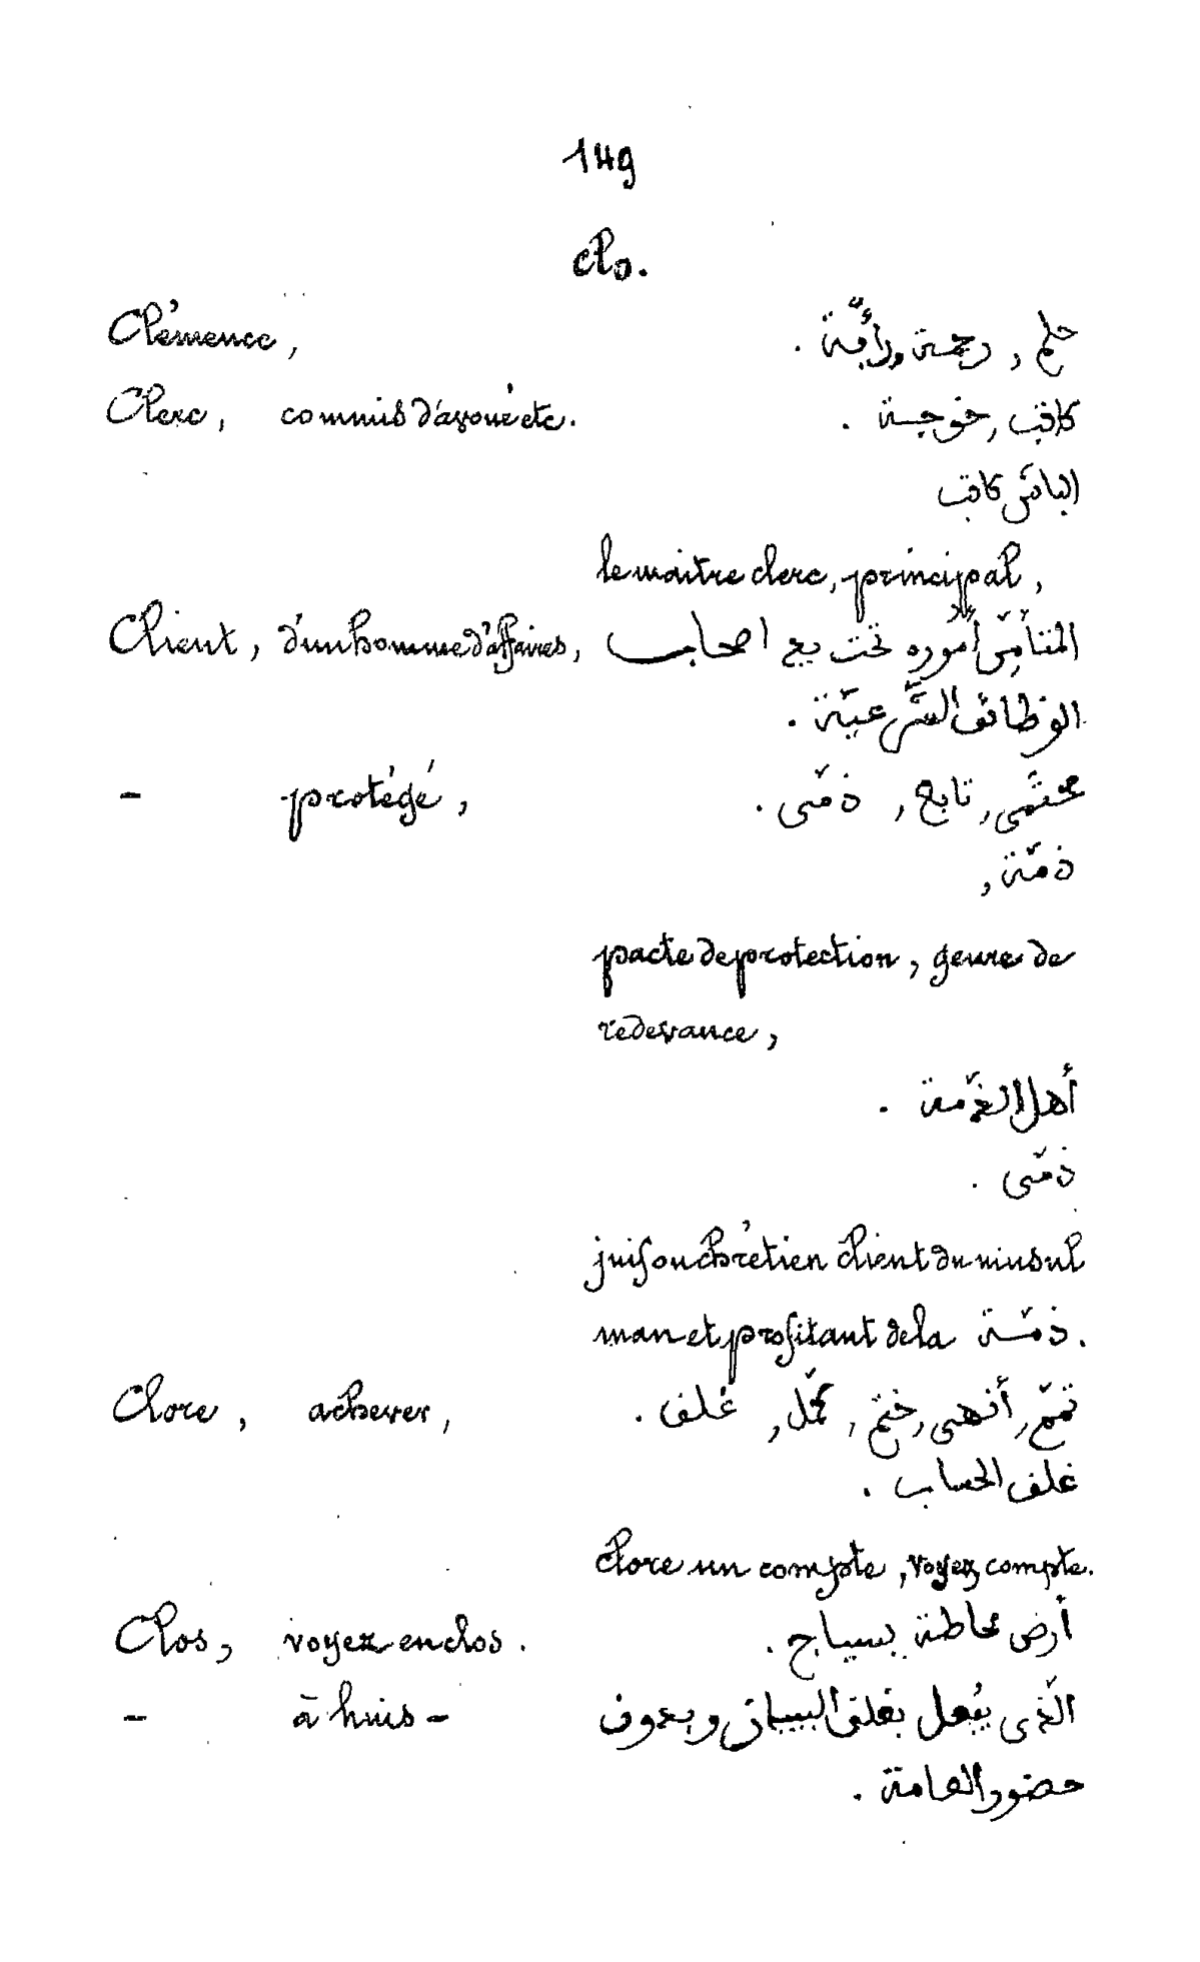 149
Clo.
Clémence, حلم, رحمة ورأفة .
Clerc, commis d'avoué etc. كاتب, خوجة .
الباش كاتب
le maitre clerc, principal,
Client, d'un homme d'affaires, أموره تحت يد اصحاب
الوظائف الشّرعيّة .
- protégé, محتمى, تابع, ذمّى .
ذمّة,
pacte de protection, genre de
redevance,
أهل الذّمة .
ذمّى .
juif ou chrétien client du musul
man et profitant de la ذمّة .
Clore, achever, تمّم, أنهى, ختم, كمّل, غلق .
غلق الحساب .
clore un compte, voyez compte.
Clos, voyez enclos. أرض محاطة بسياج .
- à huis - الّذى يُفعل بغلق البيبان وبدون
حضور العامة .